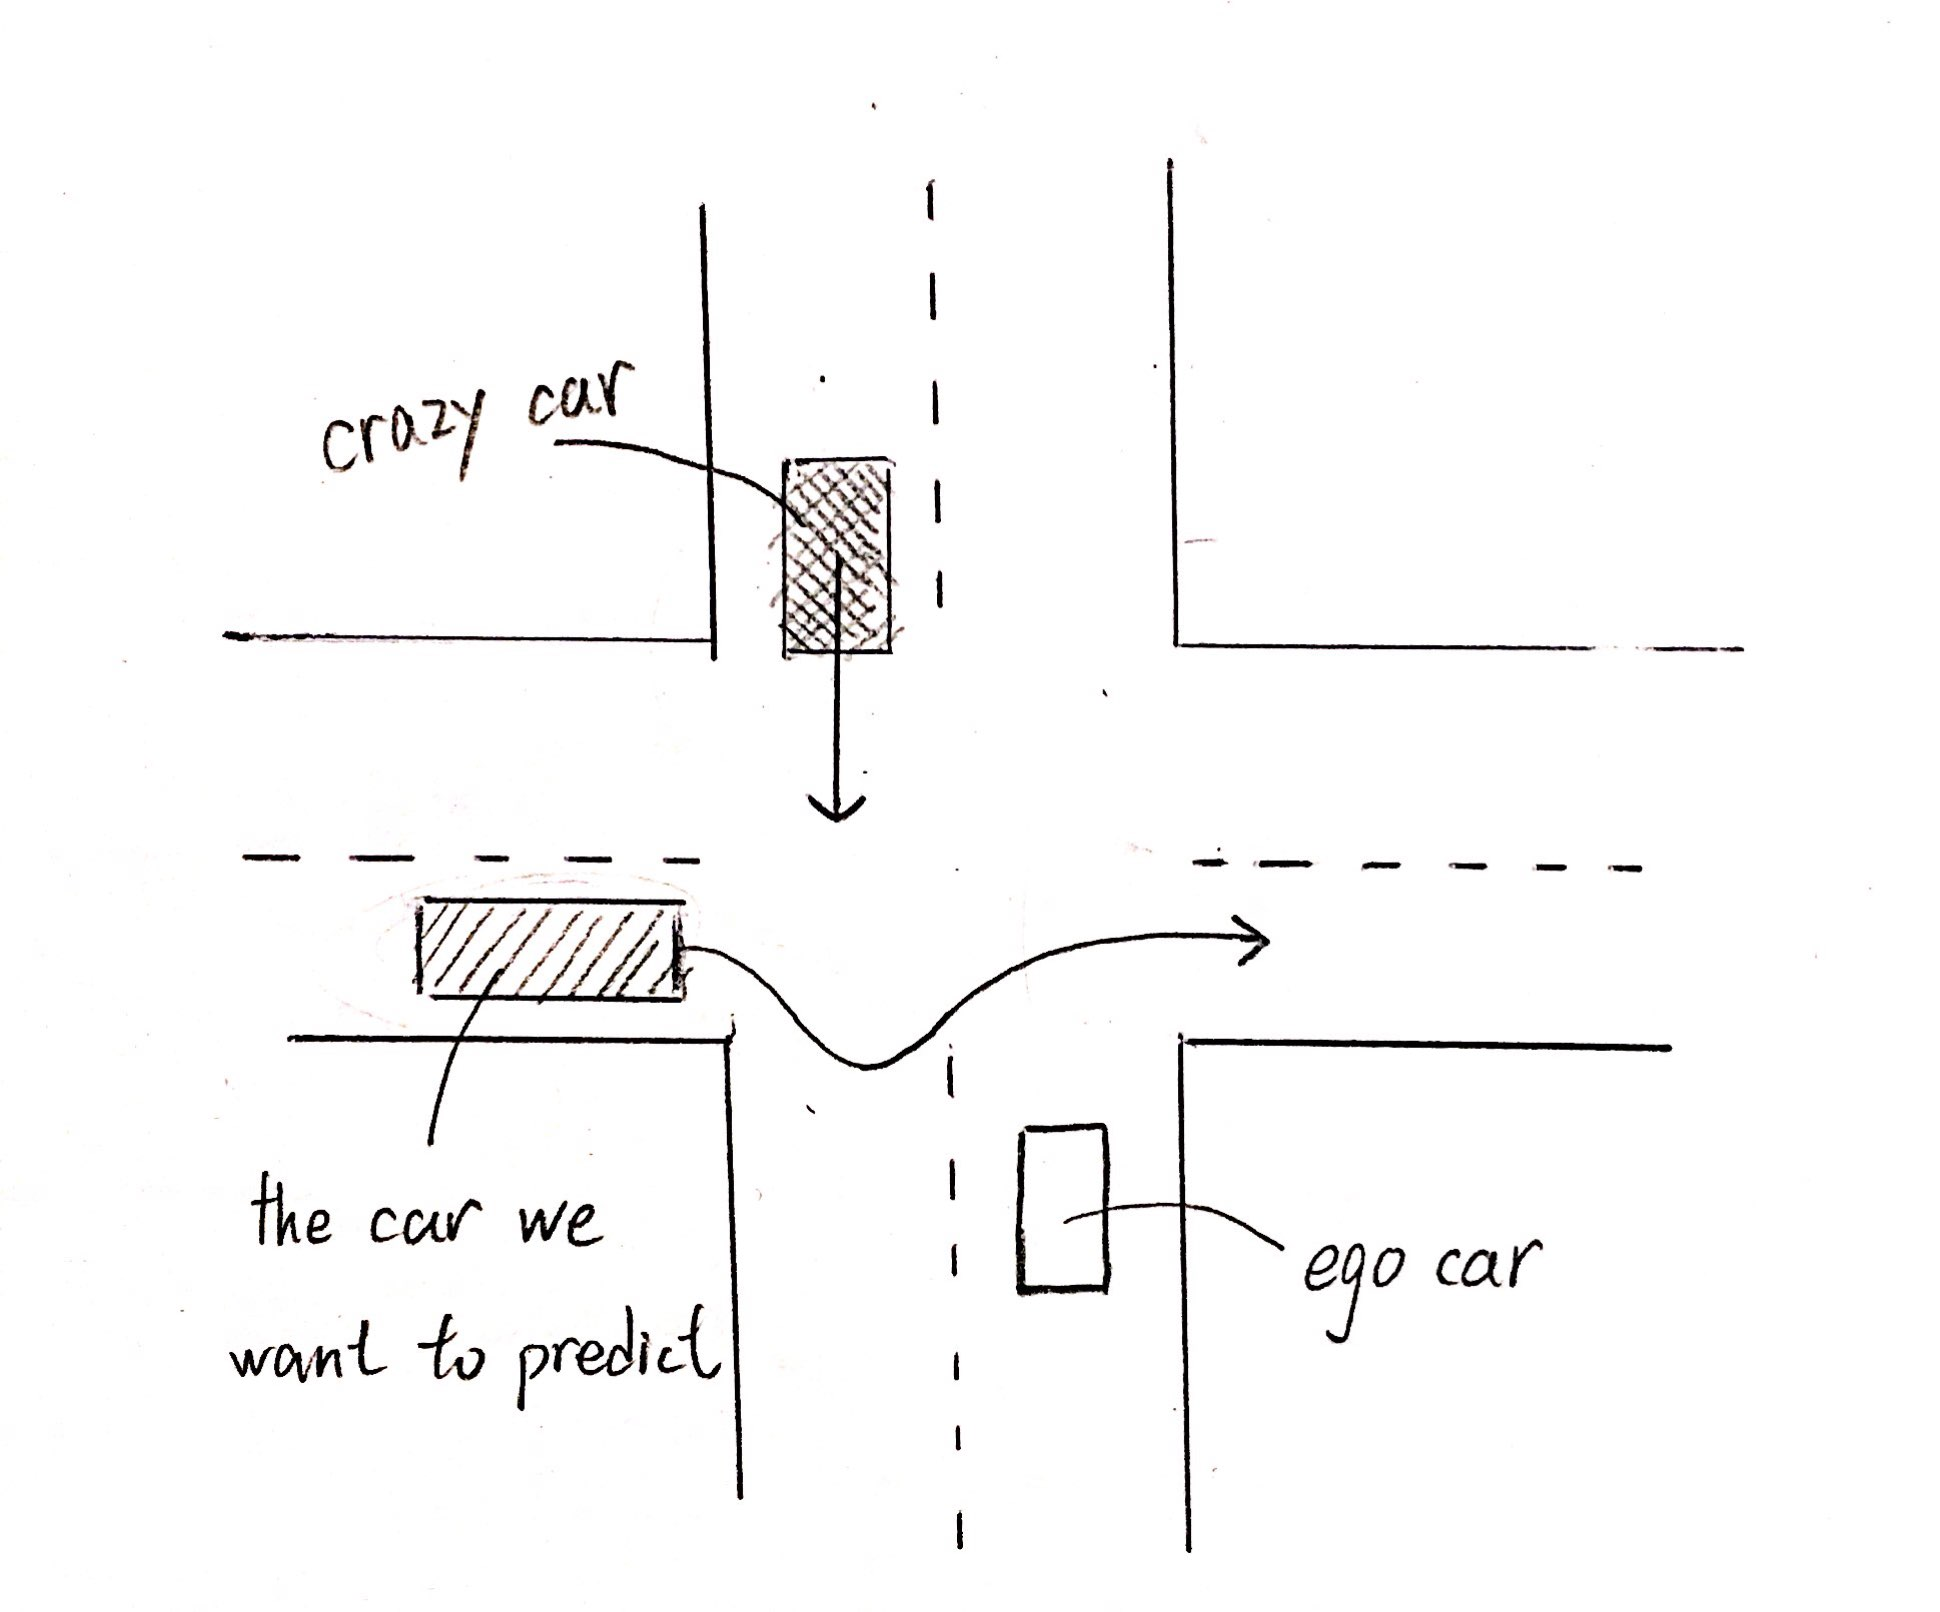 crazy car
the car we
want to predict
ego car